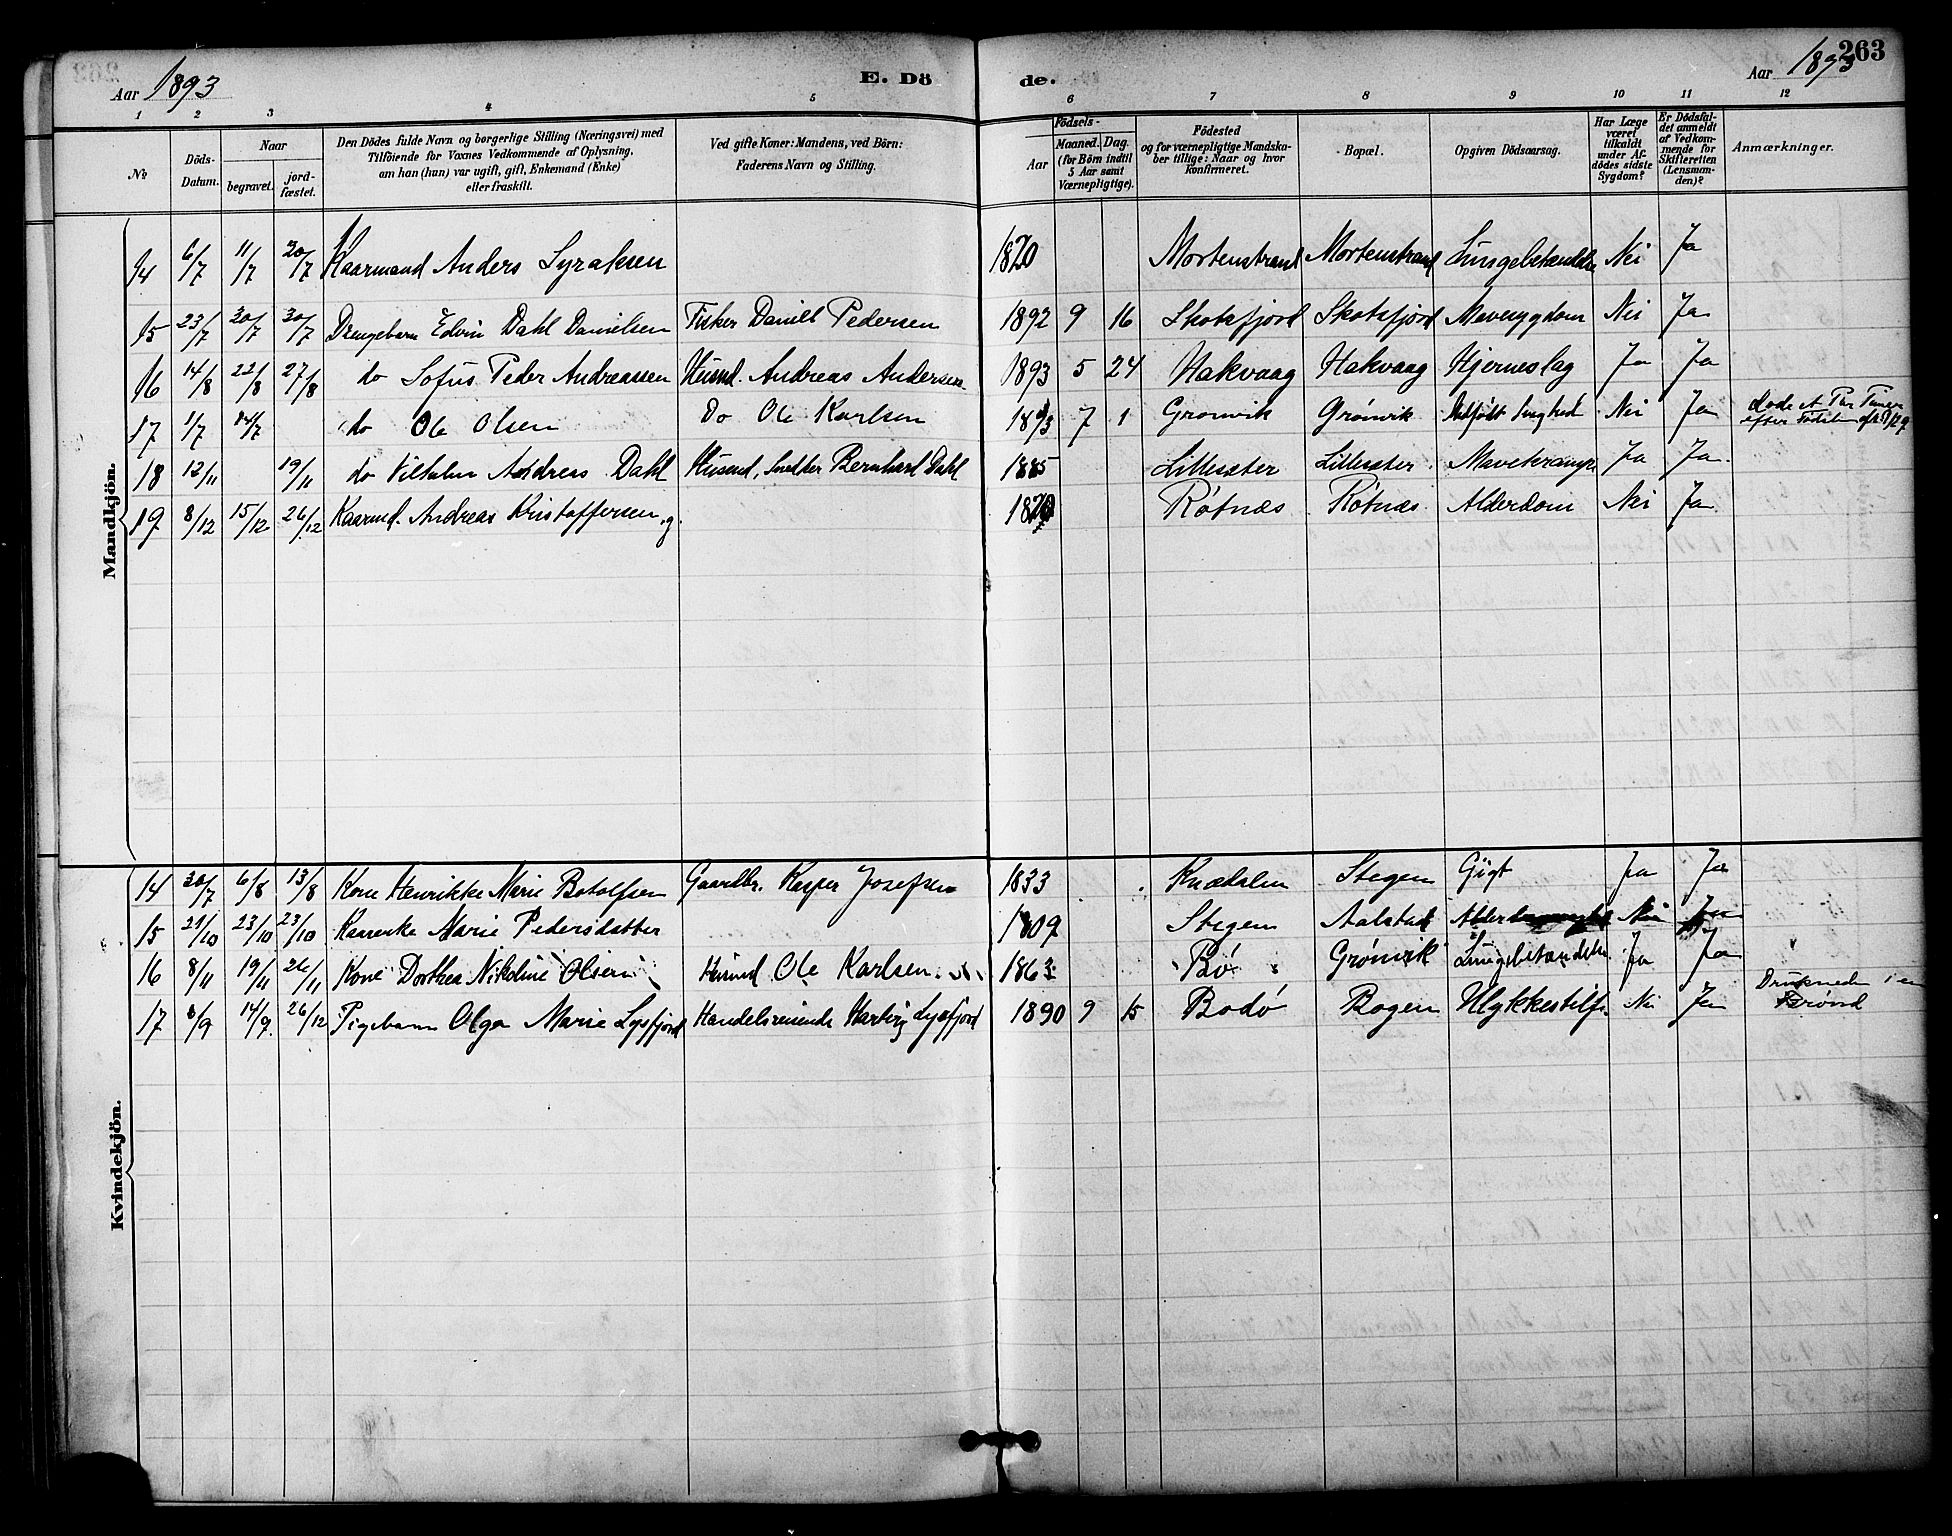 263
Aar 1893
E. Dö
de.
Aar 1893
1 2 3 4 5 6 7 8 9 10 11 12
No
Döds-
Datum.
Naar
begravet.
jord-
fæstet.
Den Dödes fulde Navn og borgerlige Stilling (Næringsvei) med
Tilföiende for Voxnes Vedkommende af Oplysning,
om han (hun) var ugift, gift, Enkemand (Enke)
eller fraskilt.
Ved gifte Koner: Mandens, ved Börn:
Faderens Navn og Stilling.
Födsels-
Aar
Maaned. Dag.
(for Börn indtil
5 Aar samt
Værnepligtige).
Födested
og for værnepligtige Mandska-
ber tillige: Naar og hvor
konfirmeret.
Bopæl.
Opgiven Dödsaarsag.
Har Læge
været
tilkaldt
under Af-
dödes sidste
Sygdom?
Er Dödsfal-
det anmeldt
af Vedkom-
mende for
Skifteretten
(Lensman-
den)?
Anmærkninger.
Mandkjön.
14 6/7 11/7 30/7 Kaarmand Anders Syraksen 1820 Mortenstrand Mortenstrand Lungebetændelse Nei Ja
15 23/7 30/7 30/7 Drengebarn Edvin Dahl Danielsen Fisker Daniel Pedersen 1892 9 16 Skotsfjord Skotsfjord Mavesygdom Nei Ja
16 14/8 22/8 27/8 do Sofus Peder Andreassen Husmd. Andreas Andersen 1893 5 24 Hakvaag Hakvaag Hjerneslag Ja Ja
17 1/7 14/7 do Ole Olsen Do Ole Karlsen 1893 7 1 Grønvik Grønvik Nei Ja efter
18 12/11 19/11 do Vilhelm Andreas Dahl Husmd, Snedker Bernhard Dahl 1885 Lillesæter Lillesæter Mavekrampe Ja Ja
19 8/12 15/12 26/12 Kaarmd. Andreas Kristoffersen, g. Røtnæs Røtnæs Alderdom Nei Ja
Kvindekjön.
14 30/7 6/8 13/8 Kone Henrikke Marie Botolfsen Gaardbr. Kasper Josefsen 1833 Knædalen Stegen Gigt Ja Ja
15 21/10 23/10 23/10 Marie Pedersdatter 1809 Stegen Aalstad Nei Ja
16 8/11 19/11 26/11 Kone Dorthea Nikoline Olsen Husmd Ole Karlsen 1863 Bø Grønvik Lungebetændelse Ja Ja
17 8/9 14/9 26/12 Pigebarn Olga Marie Lysfjord Handelsreisende Hartvig Lysfjord 1890 9 15 Bodø Bogen Ulykkestilf. Nei Ja Druknede i en
Brønd